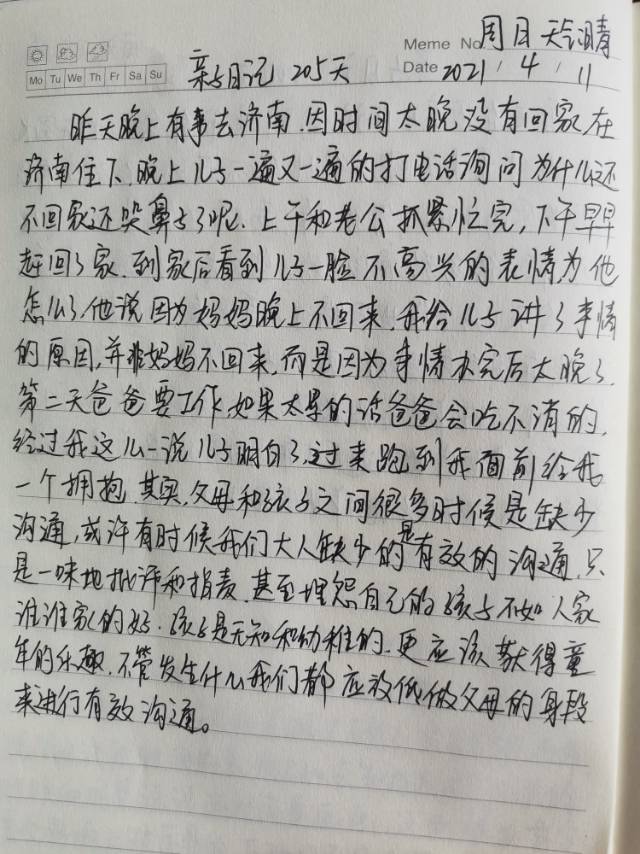 周日 天气晴
Meme No
Mo Tu We Th Fr Sa Su
亲子日记 205天
Date 2021 / 4 / 11
昨天晚上有事去济南.因时间太晚没有回家在
济南住下.晚上儿子一遍又一遍的打电话询问为什么还
不回家还哭鼻子了呢.上午和老公抓紧忙完,下午早早
赶回了家.到家后看到儿子一脸不高兴的表情,为他
怎么了.他说因为妈妈晚上不回来.我给儿子讲了事情
的原因,并非妈妈不回来.而是因为事情办完后太晚了.
第二天爸爸要工作,如果太累的话爸爸会吃不消的.
经过我这么一说儿子明白了,过来跑到我面前给我
一个拥抱.其实,父母和孩子之间很多时候是缺少
沟通,或许有时候我们大人缺少的是有效的沟通.只
是一味地批评和指责.甚至埋怨自己的孩子不如人家
谁谁家的好.孩子是无知和幼稚的.更应该获得童
年的乐趣.不管发生什么我们都应放低做父母的身段
来进行有效沟通。